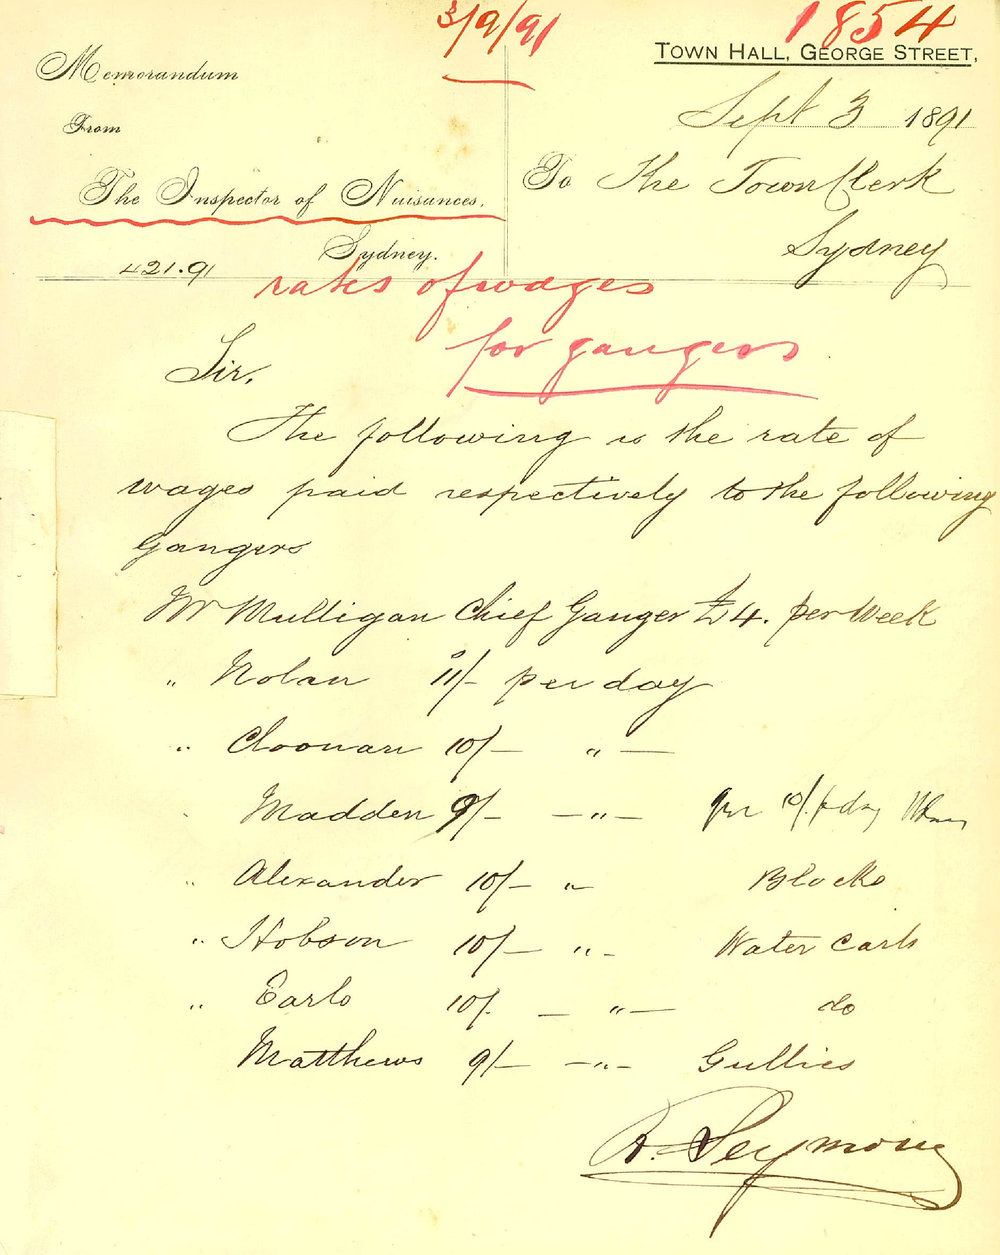 3/9/91
1854
Memorandum
From
The Inspector of Nuisances.
Sydney.
421.91
TOWN HALL, GEORGE STREET,
Sept 3 1891
To The Town Clerk
Sydney
rates of wages
for gangers
Sir,
The following is the rate of
wages paid respectively to the following
Gangers
Mr Mulligan Chief Ganger £4. per Week
" Nolan 11/- per day
" Cloonan 10/- " 
Madden 9/- — " — 10/. p day
" Alexander 10/- " Blocks
" Hobson 10/- " - Water Carts
" Earls 10/. — " — do
Matthews 9/- — " - Gullies
R. Seymour